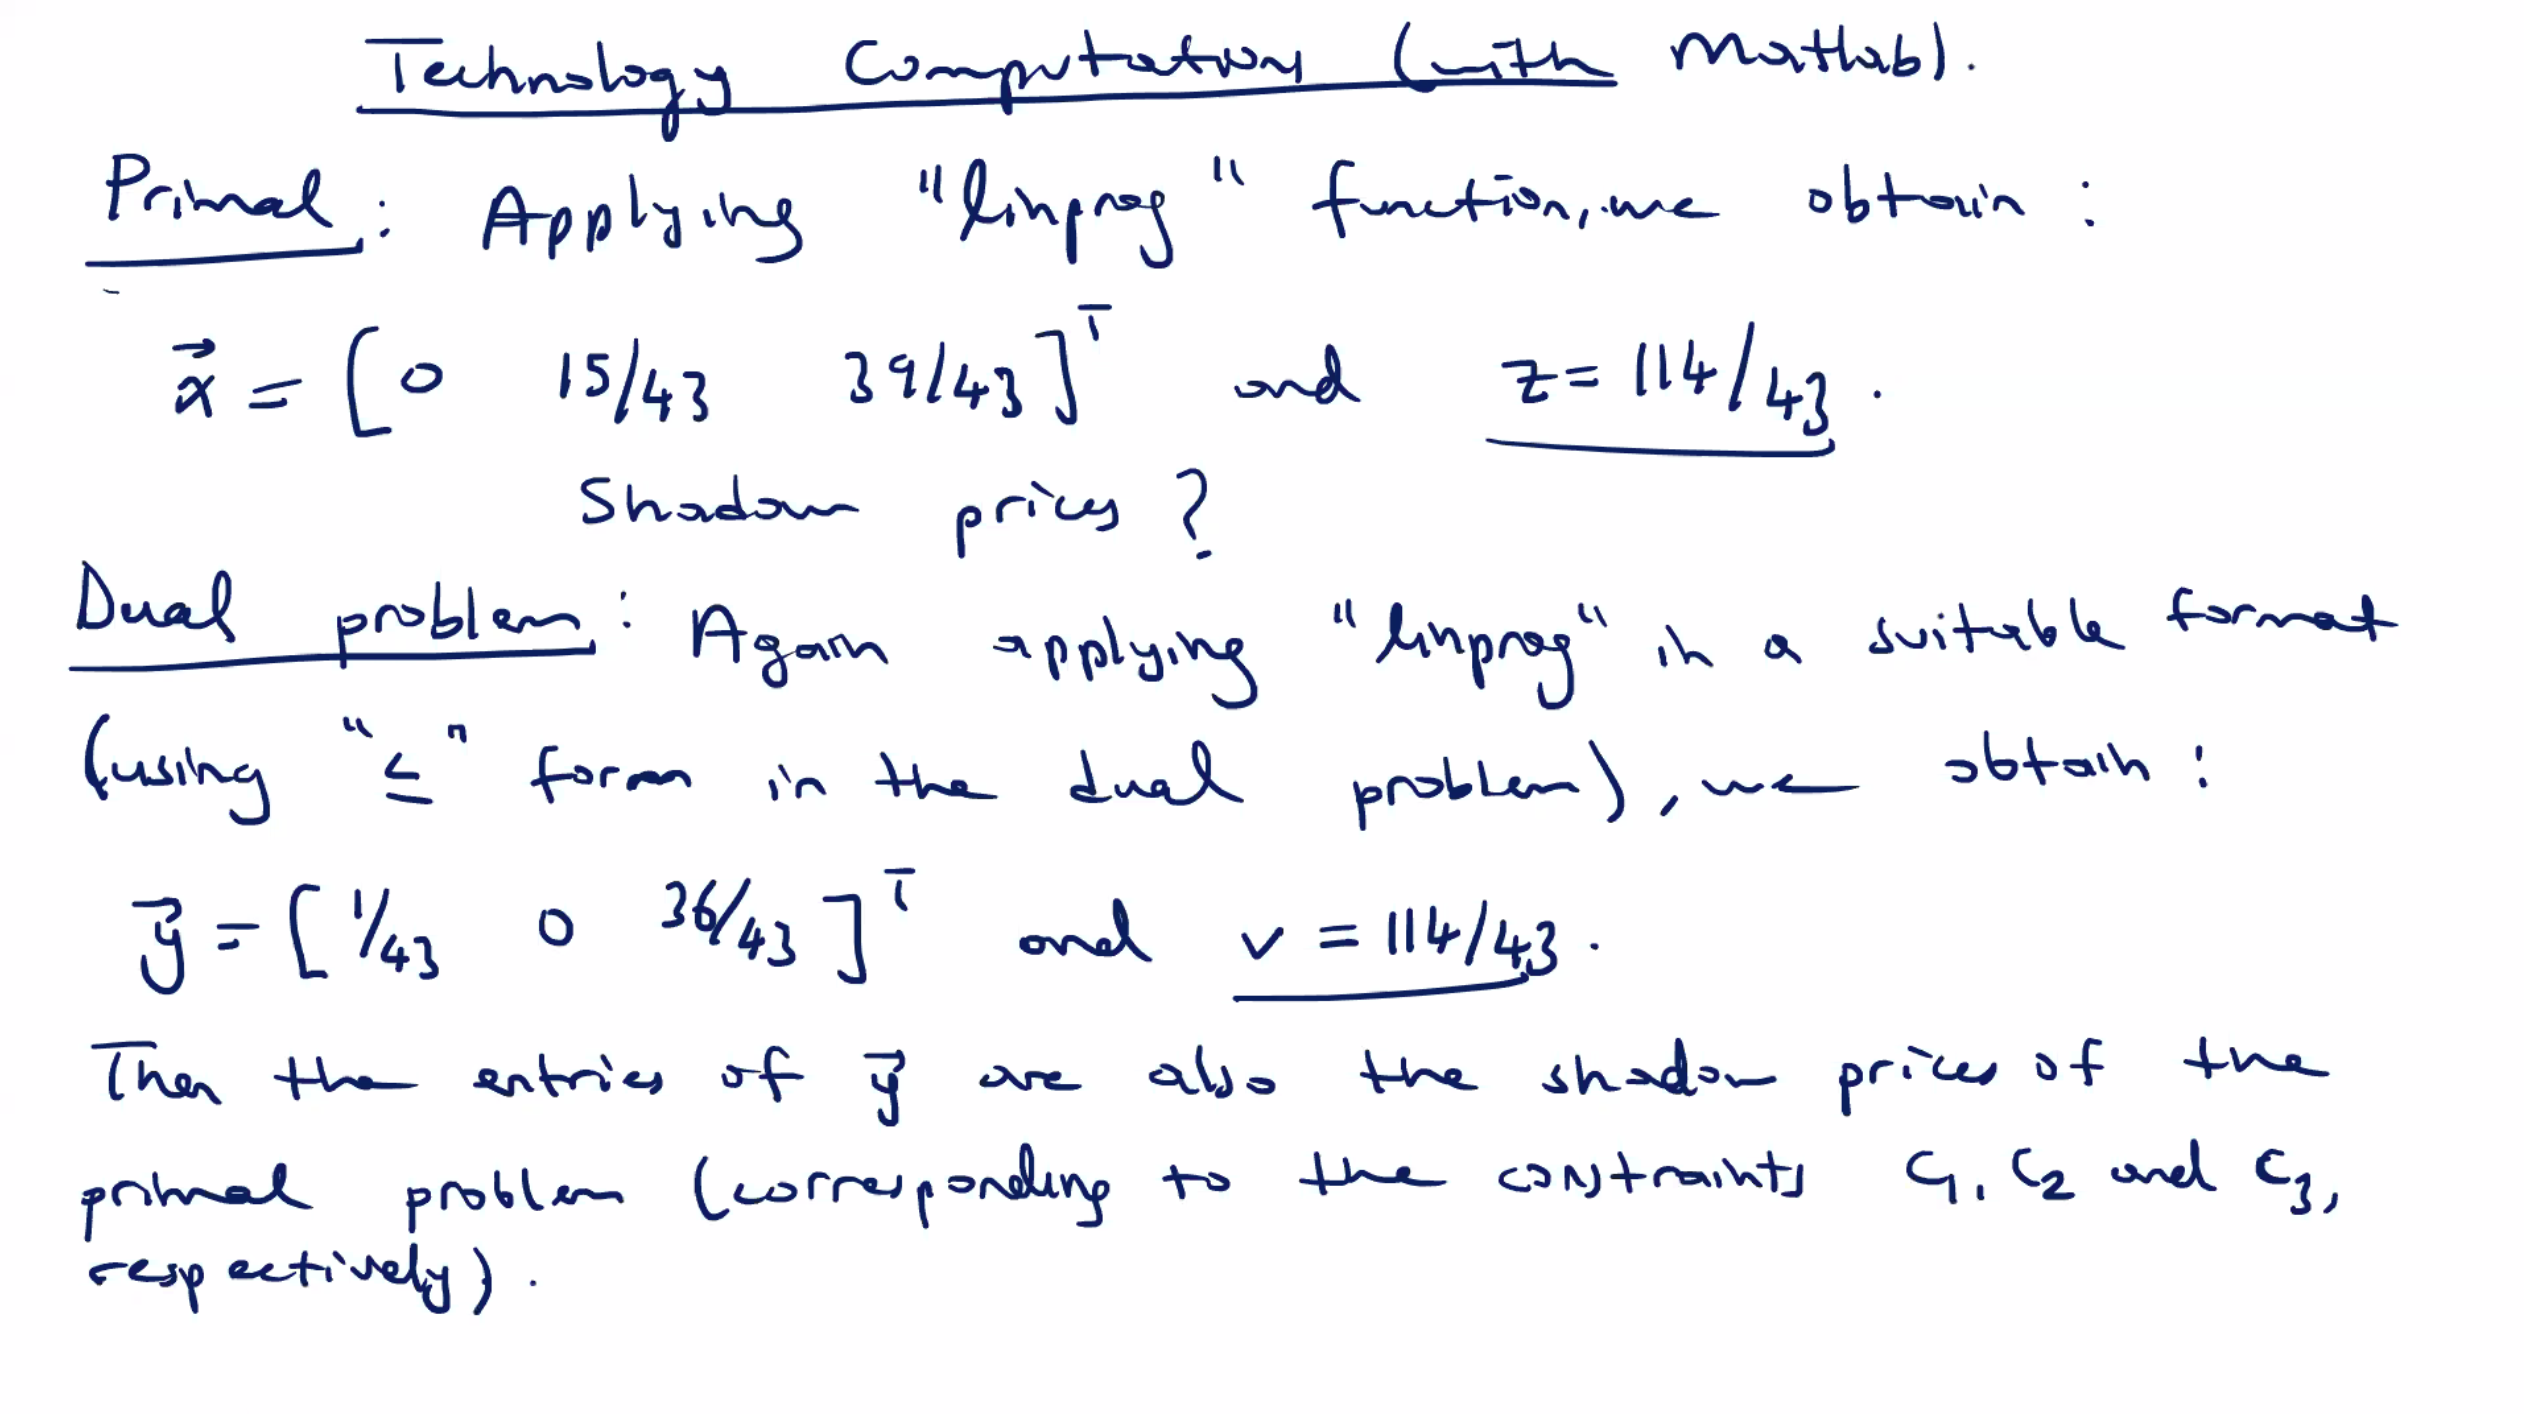 Technology Computation (with Matlab).
Primal: Applying "linprog" function, we obtain:
x⃗ = [0 15/43 39/43]ᵀ and z = 114/43.
Shadow prices?
Dual problem: Again applying "linprog" in a suitable format
(using "≤" form in the dual problem), we obtain:
y⃗ = [1/43 0 36/43]ᵀ and v = 114/43.
Then the entries of y⃗ are also the shadow prices of the
primal problem (corresponding to the constraints C₁, C₂ and C₃,
respectively).